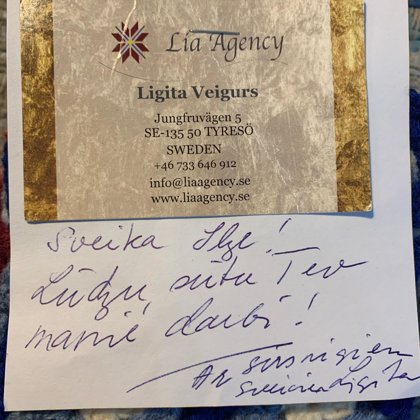 Lia Agency
Ligita Veigurs
Jungfruvägen 5
SE-135 50 TYRESÖ
SWEDEN
+46 733 646 912
info@liaagency.se
www.liaagency.se
Sveika Ilze!
Lūdzu, sūtu Tev
manie darbi!
Ar sirsnīgiem
sveicieniem Ligita